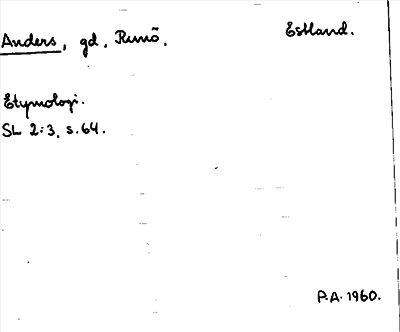 Anders, gd, Runö. Estland.
Etymologi.
SL 2:3, s. 64.
P.A. 1960.